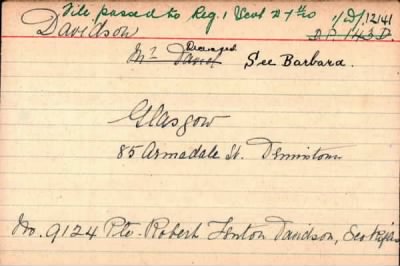 File passed to Reg. 1 Sect 27th 20 1/D/12141
Davidson D.P. 143 D.
Deceased
Mr Daniel See Barbara.
Glasgow
85 Armadale St. Dennistoun
No. 9124 Pte. Robert Fenton Davidson, Sco Rifs